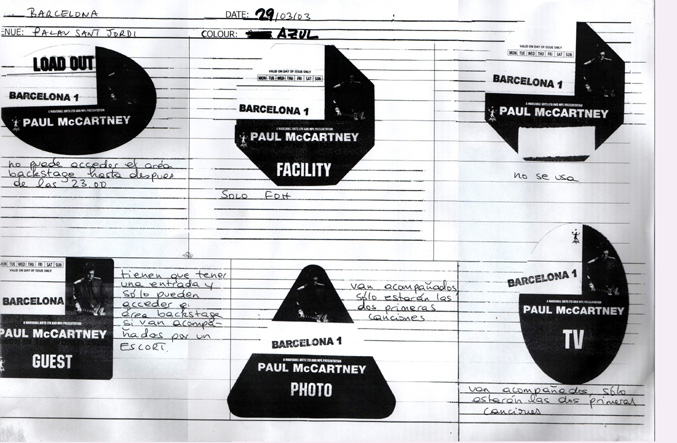 BARCELONA
DATE: 29/03/03
ENUE: PALAU SANT JORDI
COLOUR: AZUL
LOAD OUT
BARCELONA 1
A MARSHALL ARTS LTD AND MPL PRESENTATION
PAUL McCARTNEY
no puede acceder el area
backstage hasta despues
de las 23.00
VALID ON DAY OF ISSUE ONLY
MON TUE WED THU FRI SAT SUN
BARCELONA 1
A MARSHALL ARTS LTD AND MPL PRESENTATION
PAUL McCARTNEY
FACILITY
SOLO FOH
VALID ON DAY OF ISSUE ONLY
MON TUE WED THU FRI SAT SUN
BARCELONA 1
A MARSHALL ARTS LTD AND MPL PRESENTATION
PAUL McCARTNEY
no se usa
MON TUE WED THU FRI SAT SUN
VALID ON DAY OF ISSUE ONLY
BARCELONA
A MARSHALL ARTS LTD AND MPL PRESENTATION
PAUL McCARTNEY
GUEST
tienen que tener
una entrada y
sólo pueden
acceder el
área backstage
si van acompa-
ñados por un
ESCORT.
BARCELONA 1
A MARSHALL ARTS LTD AND MPL PRESENTATION
PAUL McCARTNEY
PHOTO
van acompañados
sólo estarán las
dos primeras
canciones
BARCELONA 1
A MARSHALL ARTS LTD AND MPL PRESENTATION
PAUL McCARTNEY
TV
van acompañados, sólo
estarán las dos primeras
canciones